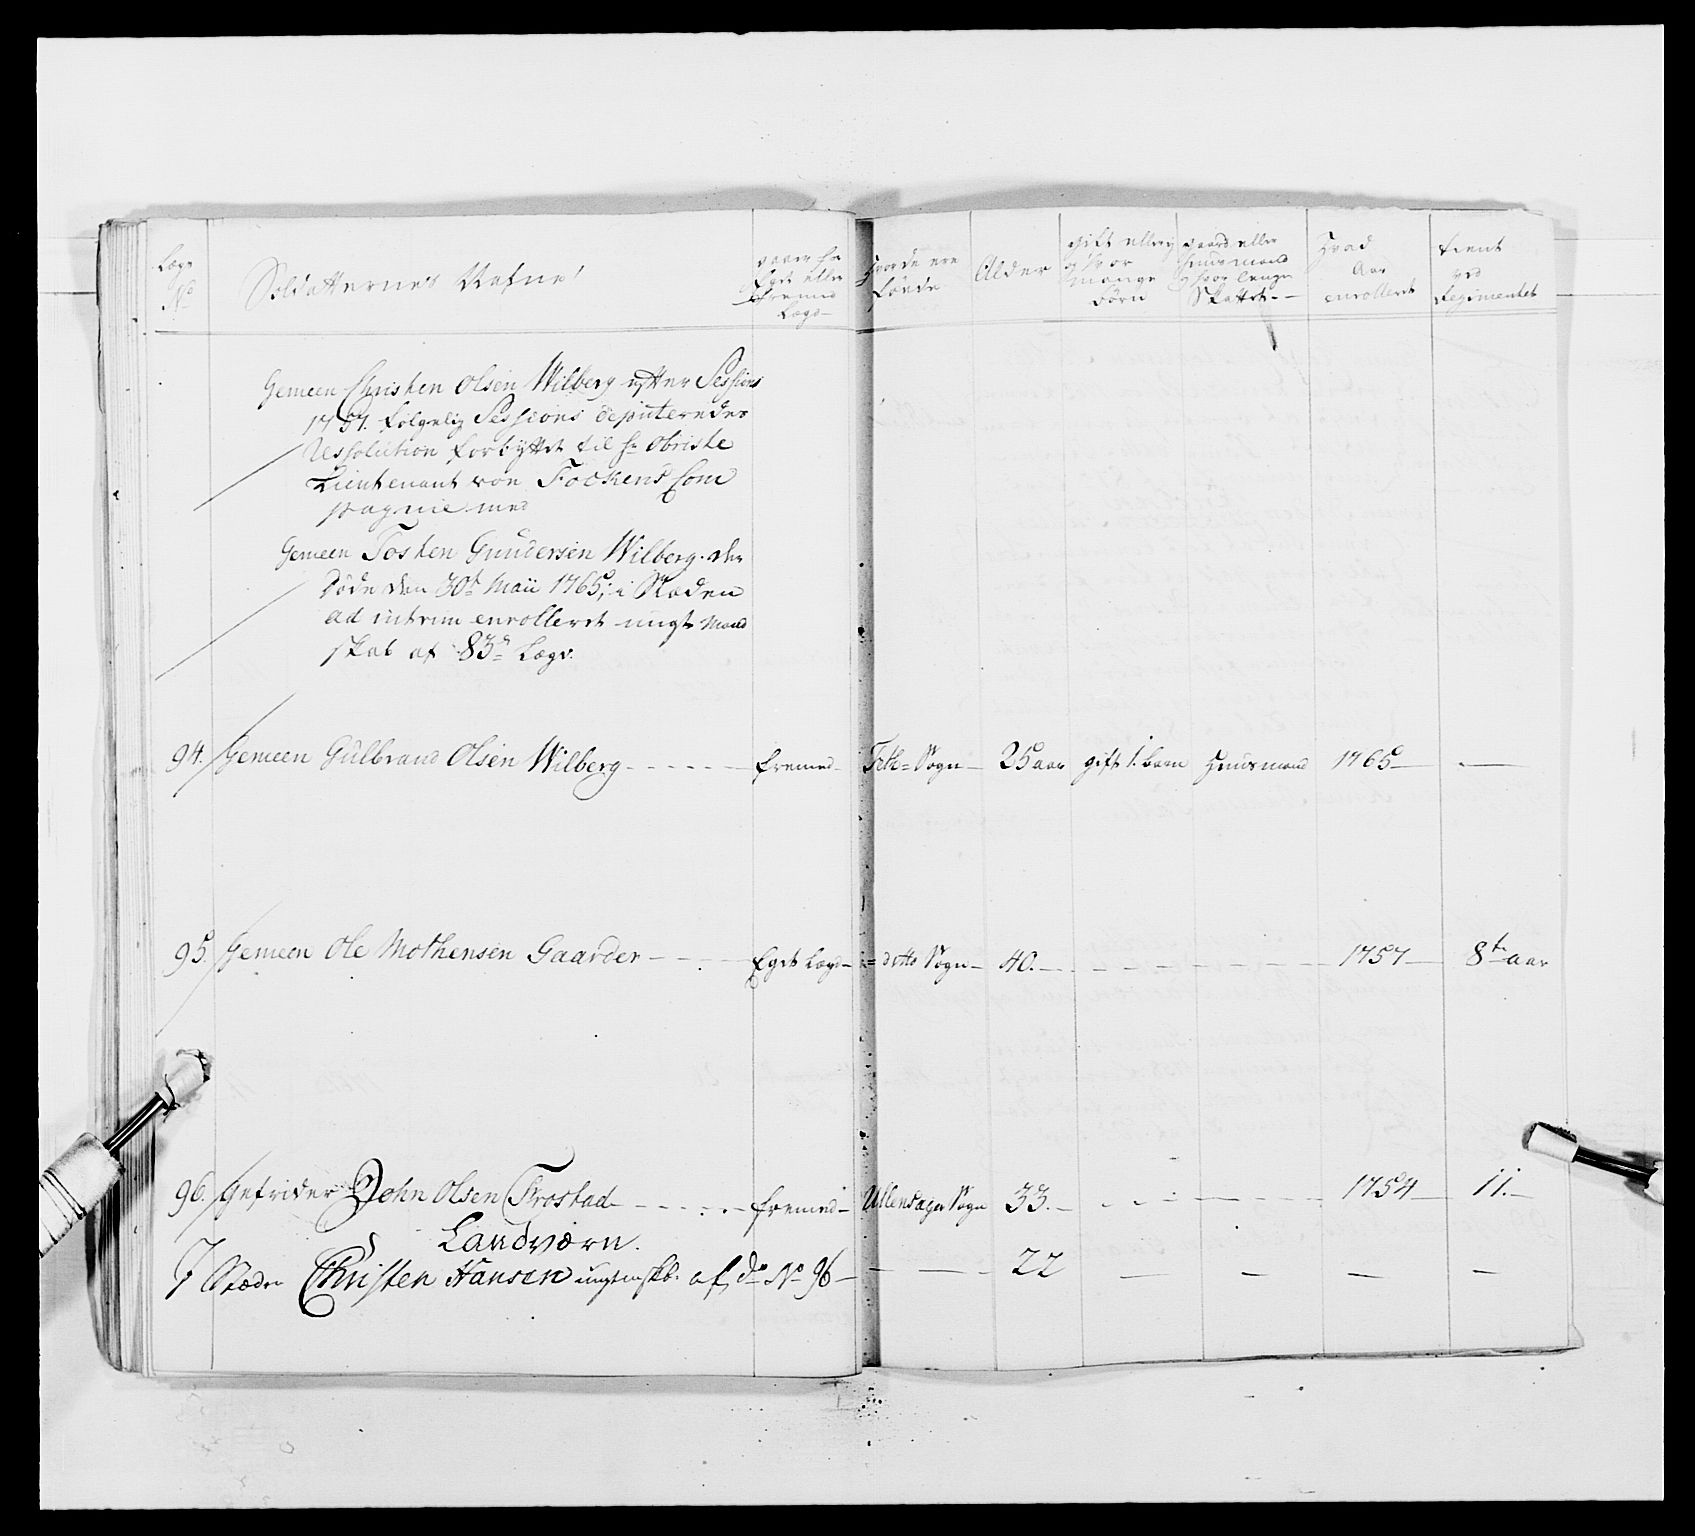 Lægs No
Soldatternes Nafne
Eget eller fremed Lægd
Hvor de ere Fødde
Alder
gift eller ey og hvor mange Børn
gaard eller huusmand
Hvad Aar enrolleret
tient ved Regimentet
Gemeen Christen Olsen Wilberg efter Sessions
1757. følgelig Sessions deputeredes
Resolution forbyttet til hr Obriste
Lieutenant von Fockens Com
pagnie med
Gemeen Tosten Gundersen Wilberg. der
døde den 30t Maii 1765; i Stæden
ad intrim enrolleret ungt Mand
skab af 83de Lægd.
94. Gemeen Gulbrand Olsen Wilberg fremed Feth Sogn 25 aar gift 1. barn Huusmand 1765
95. Gemeen Ole Mothensen Gaarder Eget Lægd ditto Sogn 40. 1757 8te aar
96. Gefrider John Olsen Frostad fremed Ullensager Sogn 33. 1754 11.
Landværn.
Stæder Christen Hansen af do No 96 22